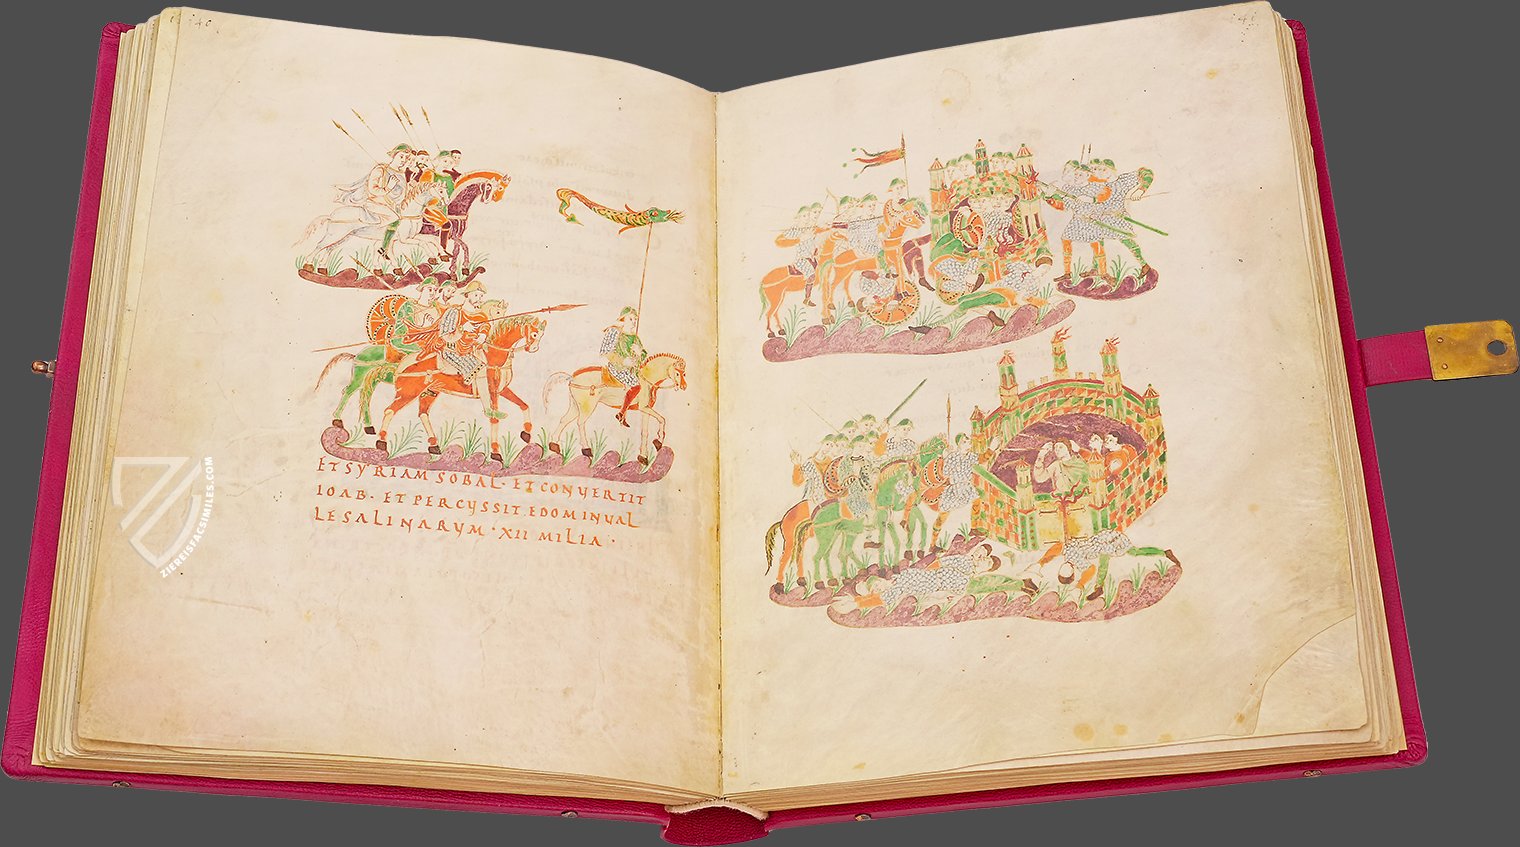 140
141
ET SYRIAM SOBAL· ET CONVERTIT
IOAB· ET PERCUSSIT EDOM IN VAL
LE SALINARUM· XII MILIA·
ZIEREISFACSIMILES.COM